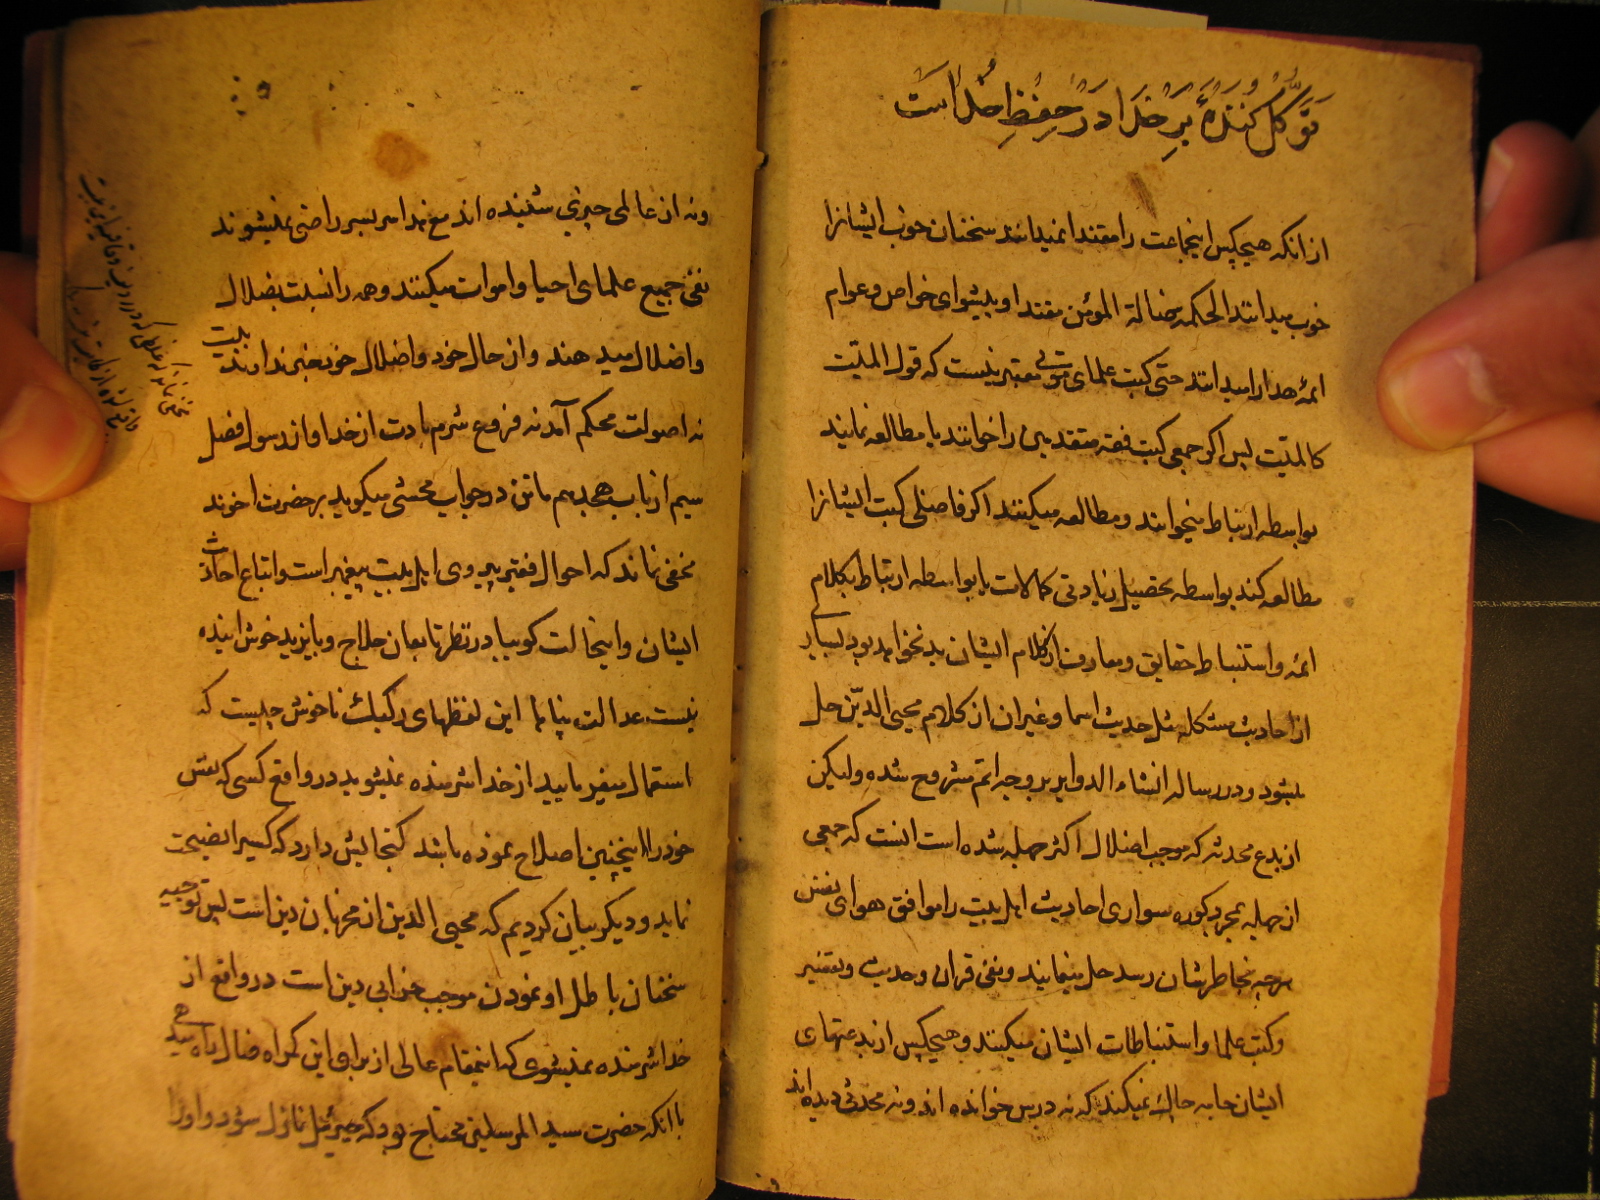 تَوَكُّل كُنَنْدَهٔ بَرِ خُدَا دَرْ حِفْظِ خُدٰا اَسَت
از انکه هیچکس اینجماعت را مقتدا نمیدانند سخنان خوب ایشانرا
خوب میدانند الحکمه ضالة المؤمن مقتدا و پیشوای خواص و عوام
ائمهٔ هدا را میدانند حتی کتب علمای موتی معتبر نیست که قول المیّت
کالمیّت پس اکر جمعی کتب فقه متقدمین را خوانند یا مطالعه نمایند
بواسطه ارتباط میخوانند و مطالعه میکنند اکر فاضلی کتب ایشانرا
مطالعه کند بواسطه تحصیل زیادتی کمالات یا بواسطه ارتباط بکلام
ائمه و استنباط حقایق و معارف از کلام ایشان بد نخواهد بود بسیاری
از احادیث مشکله مثل حدیث اسما و غیر ان از کلام محیی الدّین حل
میشود و در رساله انشاء الدوایر بر وجه اتم مشروح شده ولیکن
از بدع محدثه که موجب اضلال اکثر جهله شده است انست که جمعی
از جهله بمجرد کوره سوادی احادیث اهل بیت را موافق هوای نفس
هرچه بخاطرشان رسد حل مینمایند و نفی قران و حدیث و تفسیر
و کتب علما و استنباطات ایشان میکنند و هیچکس از بدعتهای
ایشان جامه چاک نمیکند که نه درس خوانده اند و نه محدثی دیده اند
ونه از عالمی چیزی شنیده اند مع هذا سربسر راضی نمیشوند
نفی جمیع علمای احیا و اموات میکنند و همه را نسبت بضلال
و اضلال میدهند و از حال خود و اضلال خود خبر ندارند بیت
نه اصولت محکم آمد نه فروع شرم بادت از خدا و از رسول فصل
سیم از باب هجدهم ماتن در جواب محشی میکوید بر حضرت اخوند
مخفی نماند که احوال فقیر پیروی اهل بیت پیغمبر است و اتباع احادیث
ایشان و اینحالت کوییا در نظر تابعان حلاج و بایزید خوش اینده
نیست عدالت پناها این لفظهای رکیک ناخوش چیست که
استعمال میفرمایید از خدا شرمنده نمیشوید در واقع کسی که نفس
خود را اینچنین اصلاح نموده باشد کنجایش دارد که کسیرا نصیحت
نماید و دیکر بیان کردیم که محیی الدین از مخربان دین است پس توجیه
سخنان باطل او نمودن موجب خرابی دین است در واقع از
خدا شرمنده نمیشوی که اینمقام عالی از برای این کمراه ضال راه میدهی
با انکه حضرت سید المرسلین محتاج بود که جبرئیل نازل شود و اورا